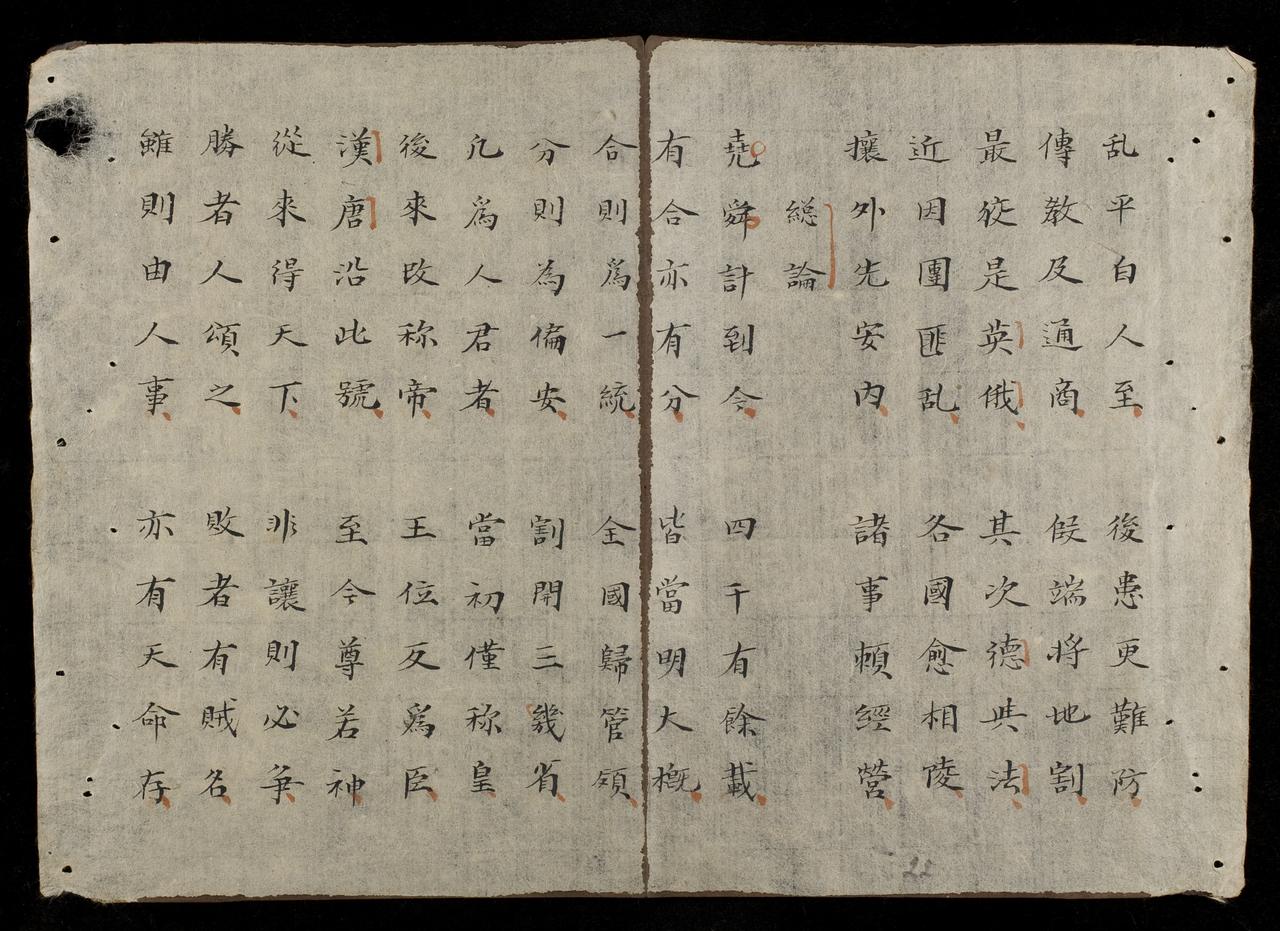 乱平白人至 後患更難防
傳教及通商 假端将地割
最狡是英俄 其次德共法
近因團匪乱 各國愈相陵
攘外先安内 諸事頼經營
総論
堯舜計到今 四千有餘載
有合亦有分 皆當明大概
合則爲一統 全國歸管領
分則為偏安 割開三幾省
凢爲人君者 當初僅称皇
後來改称帝 王位反爲臣
漢唐沿此號 至今尊若神
從來得天下 非讓則必争
勝者人頌之 敗者有賊名
雖則由人事 亦有天命存
22